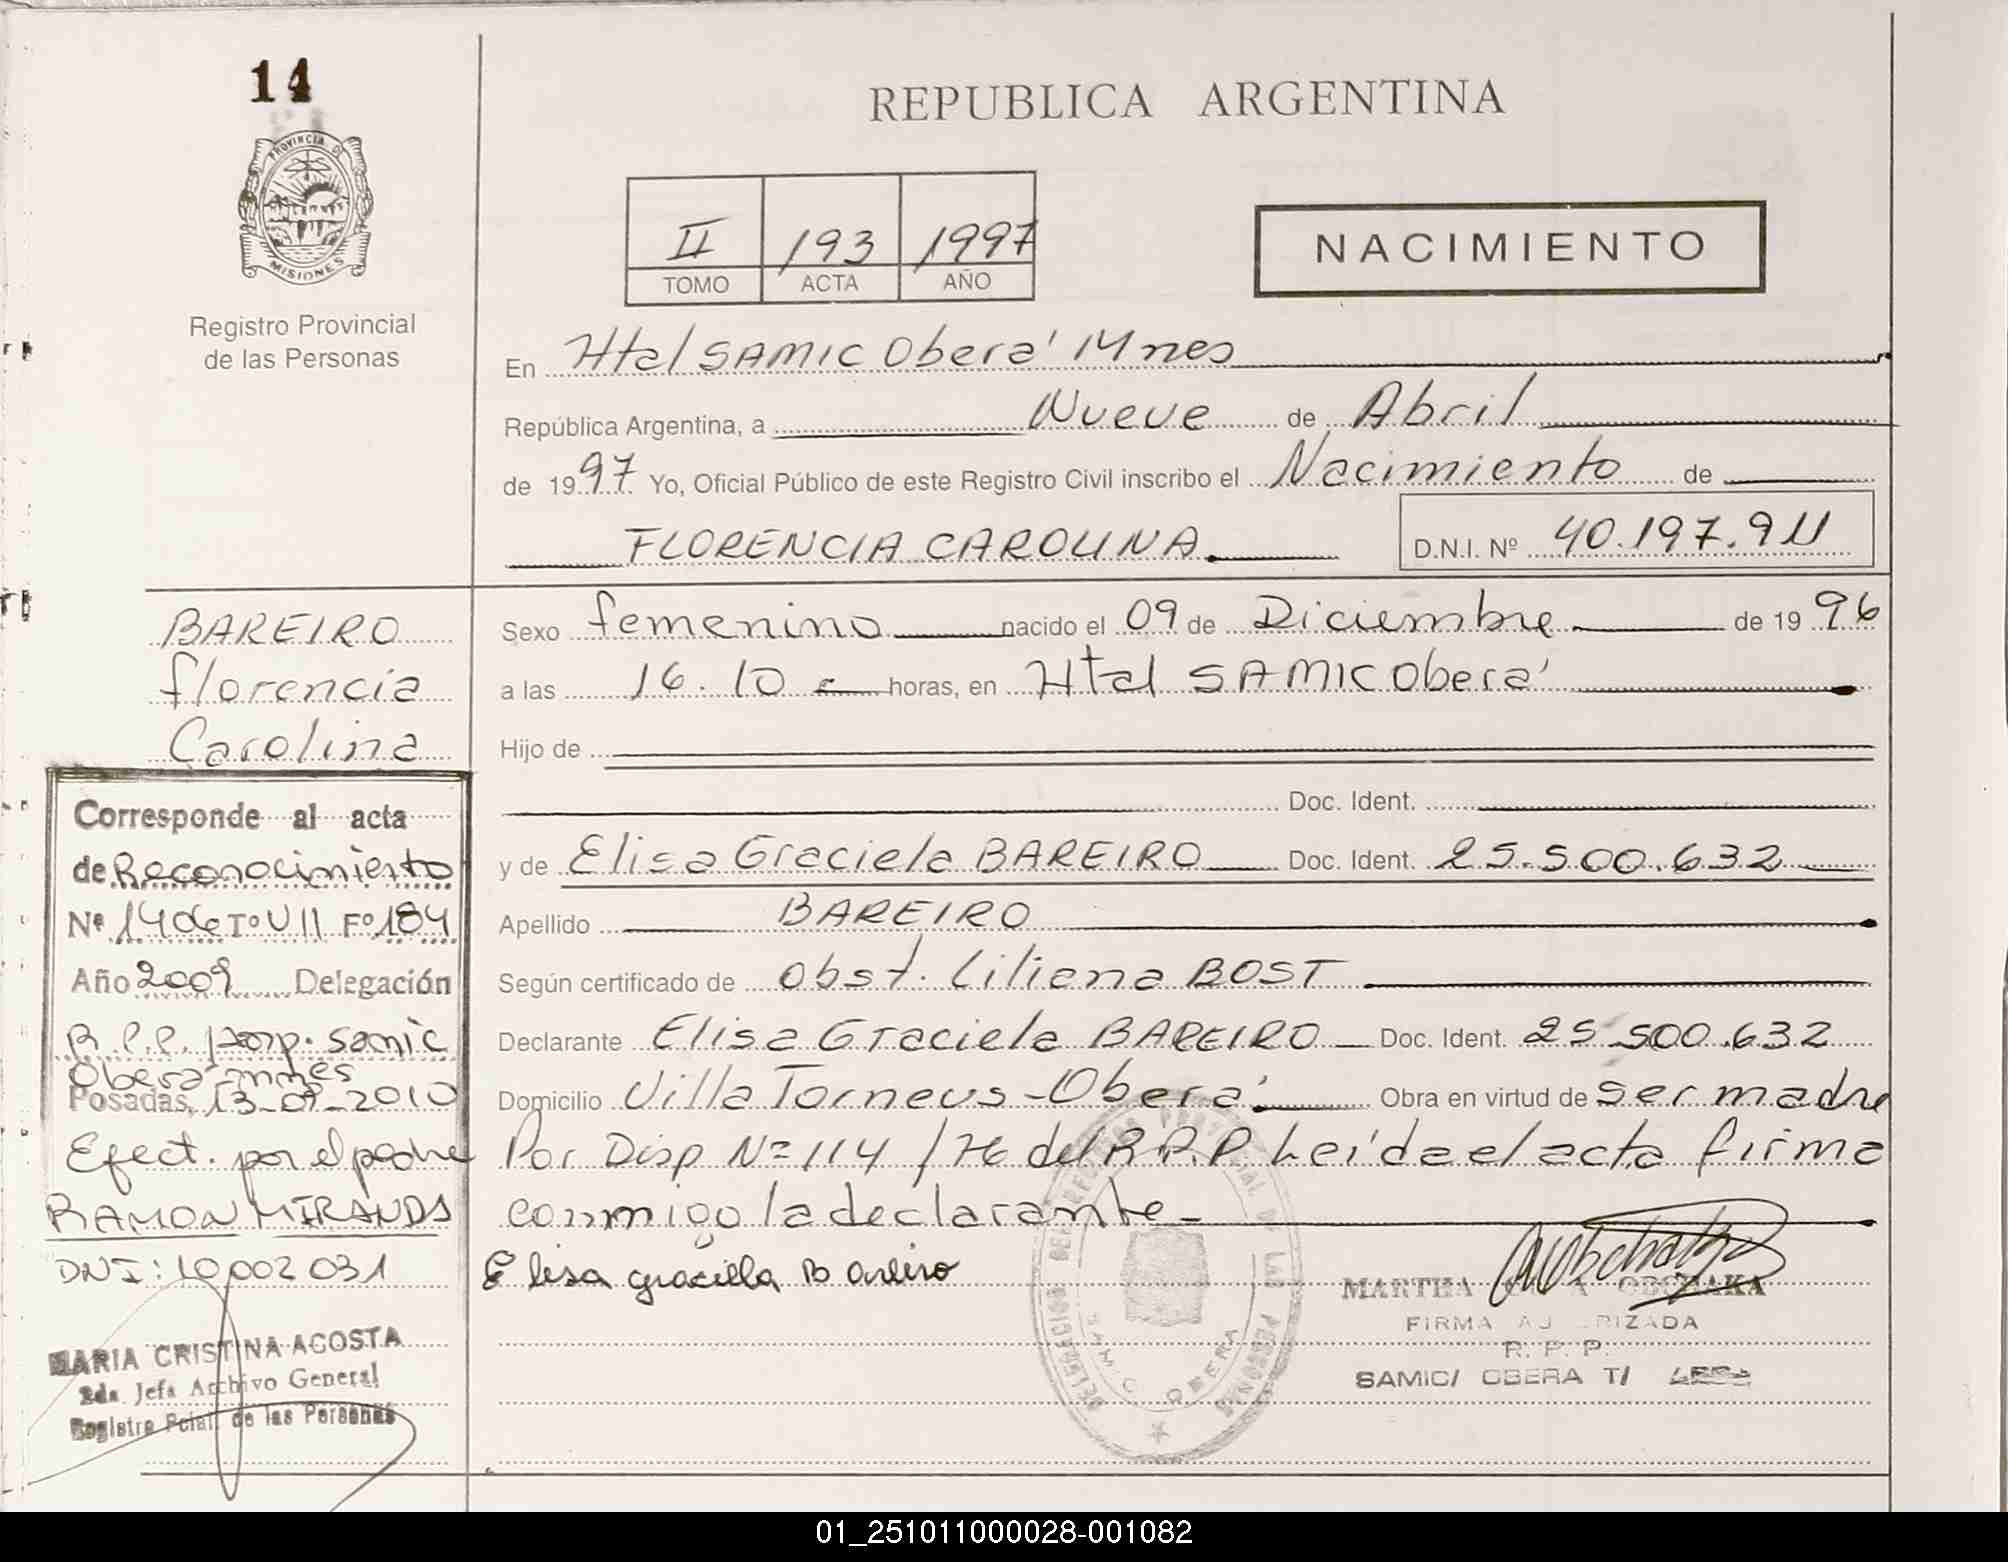 14
PROVINCIA DE
MISIONES
Registro Provincial
de las Personas
REPUBLICA ARGENTINA
II 193 1997
TOMO ACTA AÑO
NACIMIENTO
En Htal SAMIC Oberá Mnes
República Argentina, a Nueve de Abril
de 1997 Yo, Oficial Público de este Registro Civil inscribo el Nacimiento de
FLORENCIA CAROLINA D.N.I. Nº 40.197.911
BAREIRO
Florencia
Carolina
Sexo femenino nacido el 09 de Diciembre de 1996
a las 16.10 horas, en Htal SAMIC Oberá
Hijo de
Doc. Ident.
y de Elisa Graciela BAREIRO Doc. Ident. 25.500.632
Apellido BAREIRO
Según certificado de Obst. Liliana BOST
Declarante Elisa Graciela BAREIRO Doc. Ident. 25.500.632
Domicilio Villa Torneus - Oberá Obra en virtud de ser madre
Por Disp Nº 114/76 del R.P.P Leída el acta firma
conmigo la declarante
Elisa graciela Bareiro
MARTHA OBCHAKA
FIRMA AUTORIZADA
R. P. P.
SAMIC/ OBERA T/
DELEGACION DEL REGISTRO PROVINCIAL DE LAS PERSONAS
SAMIC OBERA
Corresponde al acta
de Reconocimiento
Nº 1406 Tº VII Fº 184
Año 2009 Delegación
R.P.P. Hosp. Samic
Oberá mnes
Posadas, 13-09-2010
Efect. por el padre
RAMON MIRANDA
DNI: 10 002 031
MARIA CRISTINA ACOSTA
2da. Jefa Archivo General
Registro Pcial. de las Personas
01_251011000028-001082